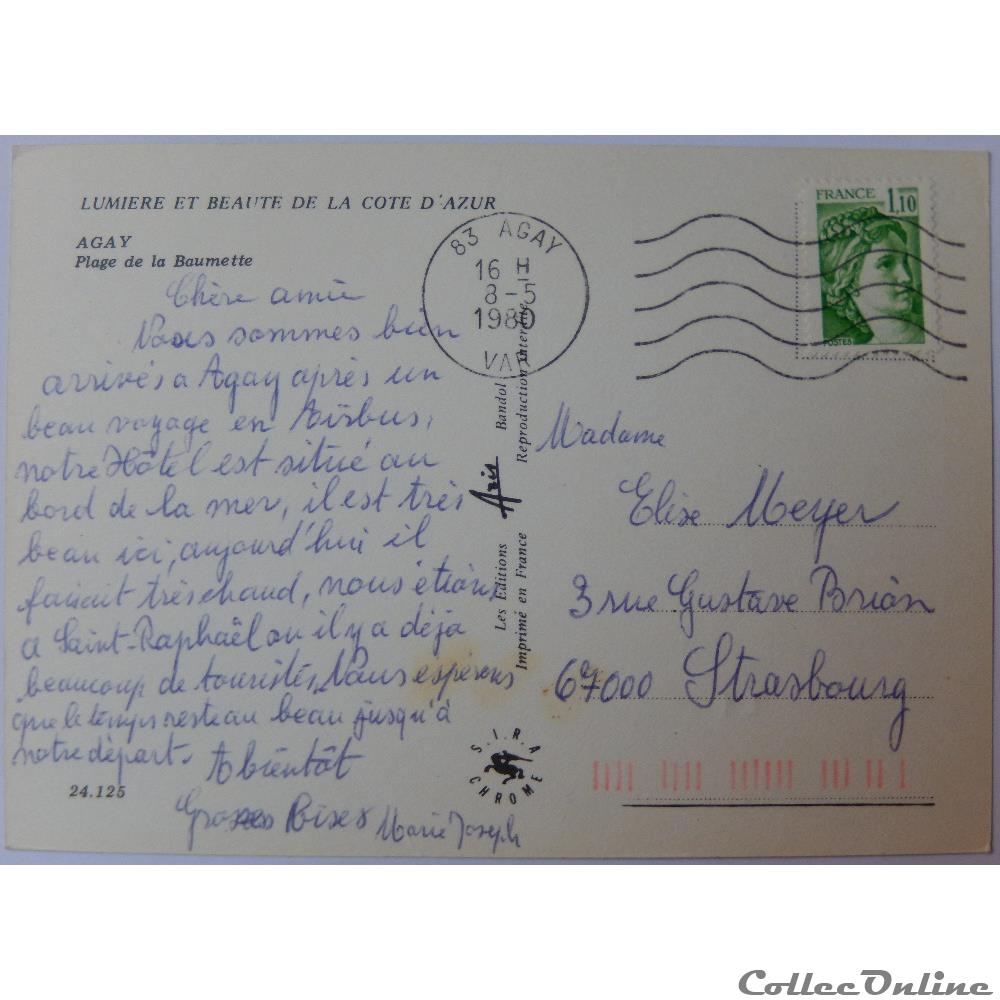 LUMIERE ET BEAUTE DE LA COTE D'AZUR
AGAY
Plage de la Baumette
Chère amie
Nous sommes bien
arrivés a Agay après un
beau voyage en Airbus,
notre Hôtel est situé au
bord de la mer, il est très
beau ici, aujourd'hui il
faisait très chaud, nous étions
a Saint-Raphaël ou il y a déjà
beaucoup de touristes, Nous espérons
que le temps reste au beau jusqu'à
notre départ.
A bientôt
Grosses Bises Marie Joseph
24.125
83 AGAY
16 H
8-5
1980
VAR
FRANCE 1,10
POSTES
Les Editions Aris Bandol
Imprimé en France Reproduction interdite
S.I.R.A
CHROME
Madame
Elise Meyer
3 rue Gustave Brion
67000 Strasbourg
CollecOnline